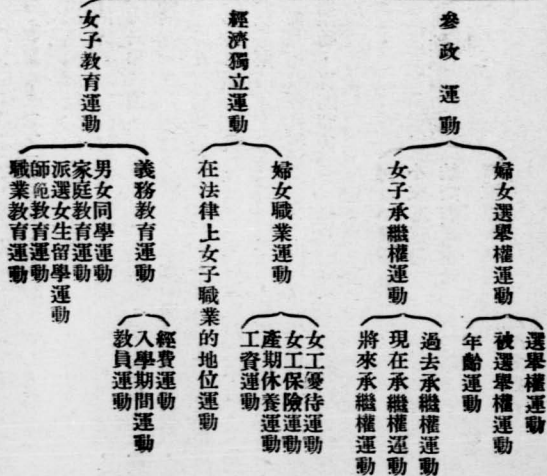 參政運動
婦女選舉權運動
選舉權運動
被選舉權運動
年齡運動
女子承繼權運動
過去承繼權運動
現在承繼權運動
將來承繼權運動
經濟獨立運動
婦女職業運動
女工優待運動
女工保險運動
產期休養運動
工資運動
在法律上女子職業的地位運動
女子教育運動
義務教育運動
經費運動
入學期間運動
教員運動
男女同學運動
家庭教育運動
派選女生留學運動
師範教育運動
職業教育運動